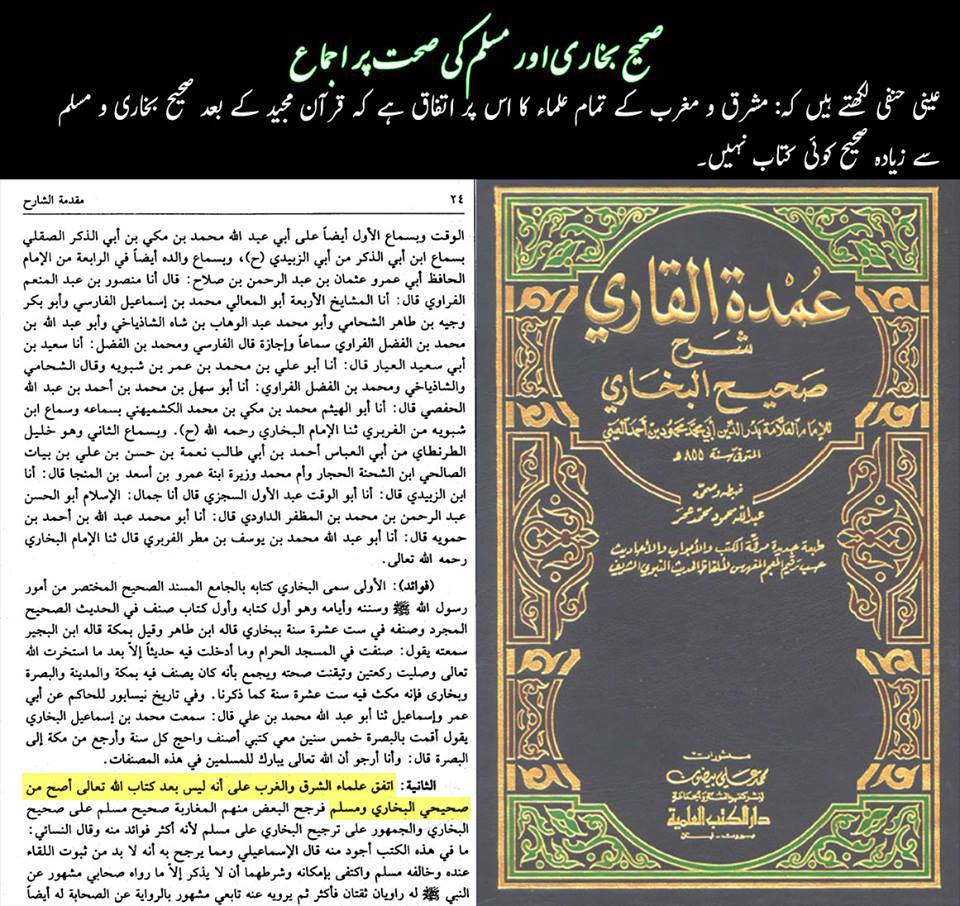 صحیح بخاری اور مسلم کی صحت پر اجماع
عینی حنفی لکھتے ہیں کہ: مشرق و مغرب کے تمام علماء کا اس پر اتفاق ہے کہ قرآن مجید کے بعد صحیح بخاری و مسلم
سے زیادہ صحیح کوئی کتاب نہیں۔
٢٤ مقدمة الشارح
الوقت وبسماع الأول أيضاً على أبي عبد الله محمد بن مكي بن أبي الذكر الصقلي
بسماع ابن أبي الذكر من أبي الزبيدي (ح)، وبسماع والده أيضاً في الرابعة من الإمام
الحافظ أبي عمرو عثمان بن عبد الرحمن بن صلاح: قال أنا منصور بن عبد المنعم
الفراوي قال: أنا المشايخ الأربعة أبو المعالي محمد بن إسماعيل الفارسي وأبو بكر
وجيه بن طاهر الشحامي وأبو محمد عبد الوهاب بن شاه الشاذياخي وأبو عبد الله بن
محمد بن الفضل الفراوي سماعاً وإجازة قال الفارسي ومحمد بن الفضل: أنا سعيد بن
أبي سعيد العيار قال: أنا أبو علي بن محمد بن عمر بن شبويه وقال الشحامي
والشاذياخي ومحمد بن الفضل الفراوي: أنا أبو سهل بن محمد بن أحمد بن عبد الله
الحفصي قال: أنا أبو الهيثم محمد بن مكي بن محمد الكشميهني بسماعه وسماع ابن
شبويه من الفربري ثنا الإمام البخاري رحمه الله (ح). وبسماع الثاني وهو خليل
الطرنطاي من أبي العباس أحمد بن أبي طالب نعمة بن حسن بن علي بن بيات
الصالحي ابن الشحنة الحجار وأم محمد وزيرة ابنة عمرو بن أسعد بن المنجا قال: أنا
ابن الزبيدي قال: أنا أبو الوقت عبد الأول السجزي قال أنا جمال: الإسلام أبو الحسن
عبد الرحمن بن محمد بن المظفر الداودي قال: أنا أبو محمد عبد الله بن أحمد بن
حمويه قال: أنا أبو عبد الله محمد بن يوسف بن مطر الفربري قال ثنا الإمام البخاري
رحمه الله تعالى.
(فوائد): الأولى سمى البخاري كتابه بالجامع المسند الصحيح المختصر من أمور
رسول الله ﷺ وسننه وأيامه وهو أول كتابه وأول كتاب صنف في الحديث الصحيح
المجرد وصنفه في ست عشرة سنة ببخاري قاله ابن طاهر وقيل بمكة قاله ابن البجير
سمعته يقول: صنفت في المسجد الحرام وما أدخلت فيه حديثاً إلاّ بعد ما استخرت الله
تعالى وصليت ركعتين وتيقنت صحته ويجمع بأنه كان يصنف فيه بمكة والمدينة والبصرة
وبخارى فإنه مكث فيه ست عشرة سنة كما ذكرنا. وفي تاريخ نيسابور للحاكم عن أبي
عمر وإسماعيل ثنا أبو عبد الله محمد بن علي قال: سمعت محمد بن إسماعيل البخاري
يقول أقمت بالبصرة خمس سنين معي كتبي أصنف واحج كل سنة وأرجع من مكة إلى
البصرة قال: وأنا أرجو أن الله تعالى يبارك للمسلمين في هذه المصنفات.
الثانية: اتفق علماء الشرق والغرب على أنه ليس بعد كتاب الله تعالى أصح من
صحيحي البخاري ومسلم فرجح البعض منهم المغاربة صحيح مسلم على صحيح
البخاري والجمهور على ترجيح البخاري على مسلم لأنه أكثر فوائد منه وقال النسائي:
ما في هذه الكتب أجود منه قال الإسماعيلي ومما يرجح به أنه لا بد من ثبوت اللقاء
عنده وخالفه مسلم واكتفى بإمكانه وشرطهما أن لا يذكر إلاّ ما رواه صحابي مشهور عن
النبي ﷺ له راويان ثقتان فأكثر ثم يرويه عنه تابعي مشهور بالرواية عن الصحابة له أيضاً
عمدة القاري
شرح
صحيح البخاري
للإمام العلامة بدر الدين أبي محمد محمود بن أحمد العيني
المتوفى سنة ٨٥٥ هـ
ضبطه وصححه
عبد الله محمود محمد عمر
طبعة جديدة مرقمة الكتب والأبواب والأحاديث
حسب ترقيم المعجم المفهرس لألفاظ الحديث النبوي الشريف
منشورات
محمد علي بيضون
لنشر كتب السنة والجماعة
دار الكتب العلمية
بيروت - لبنان